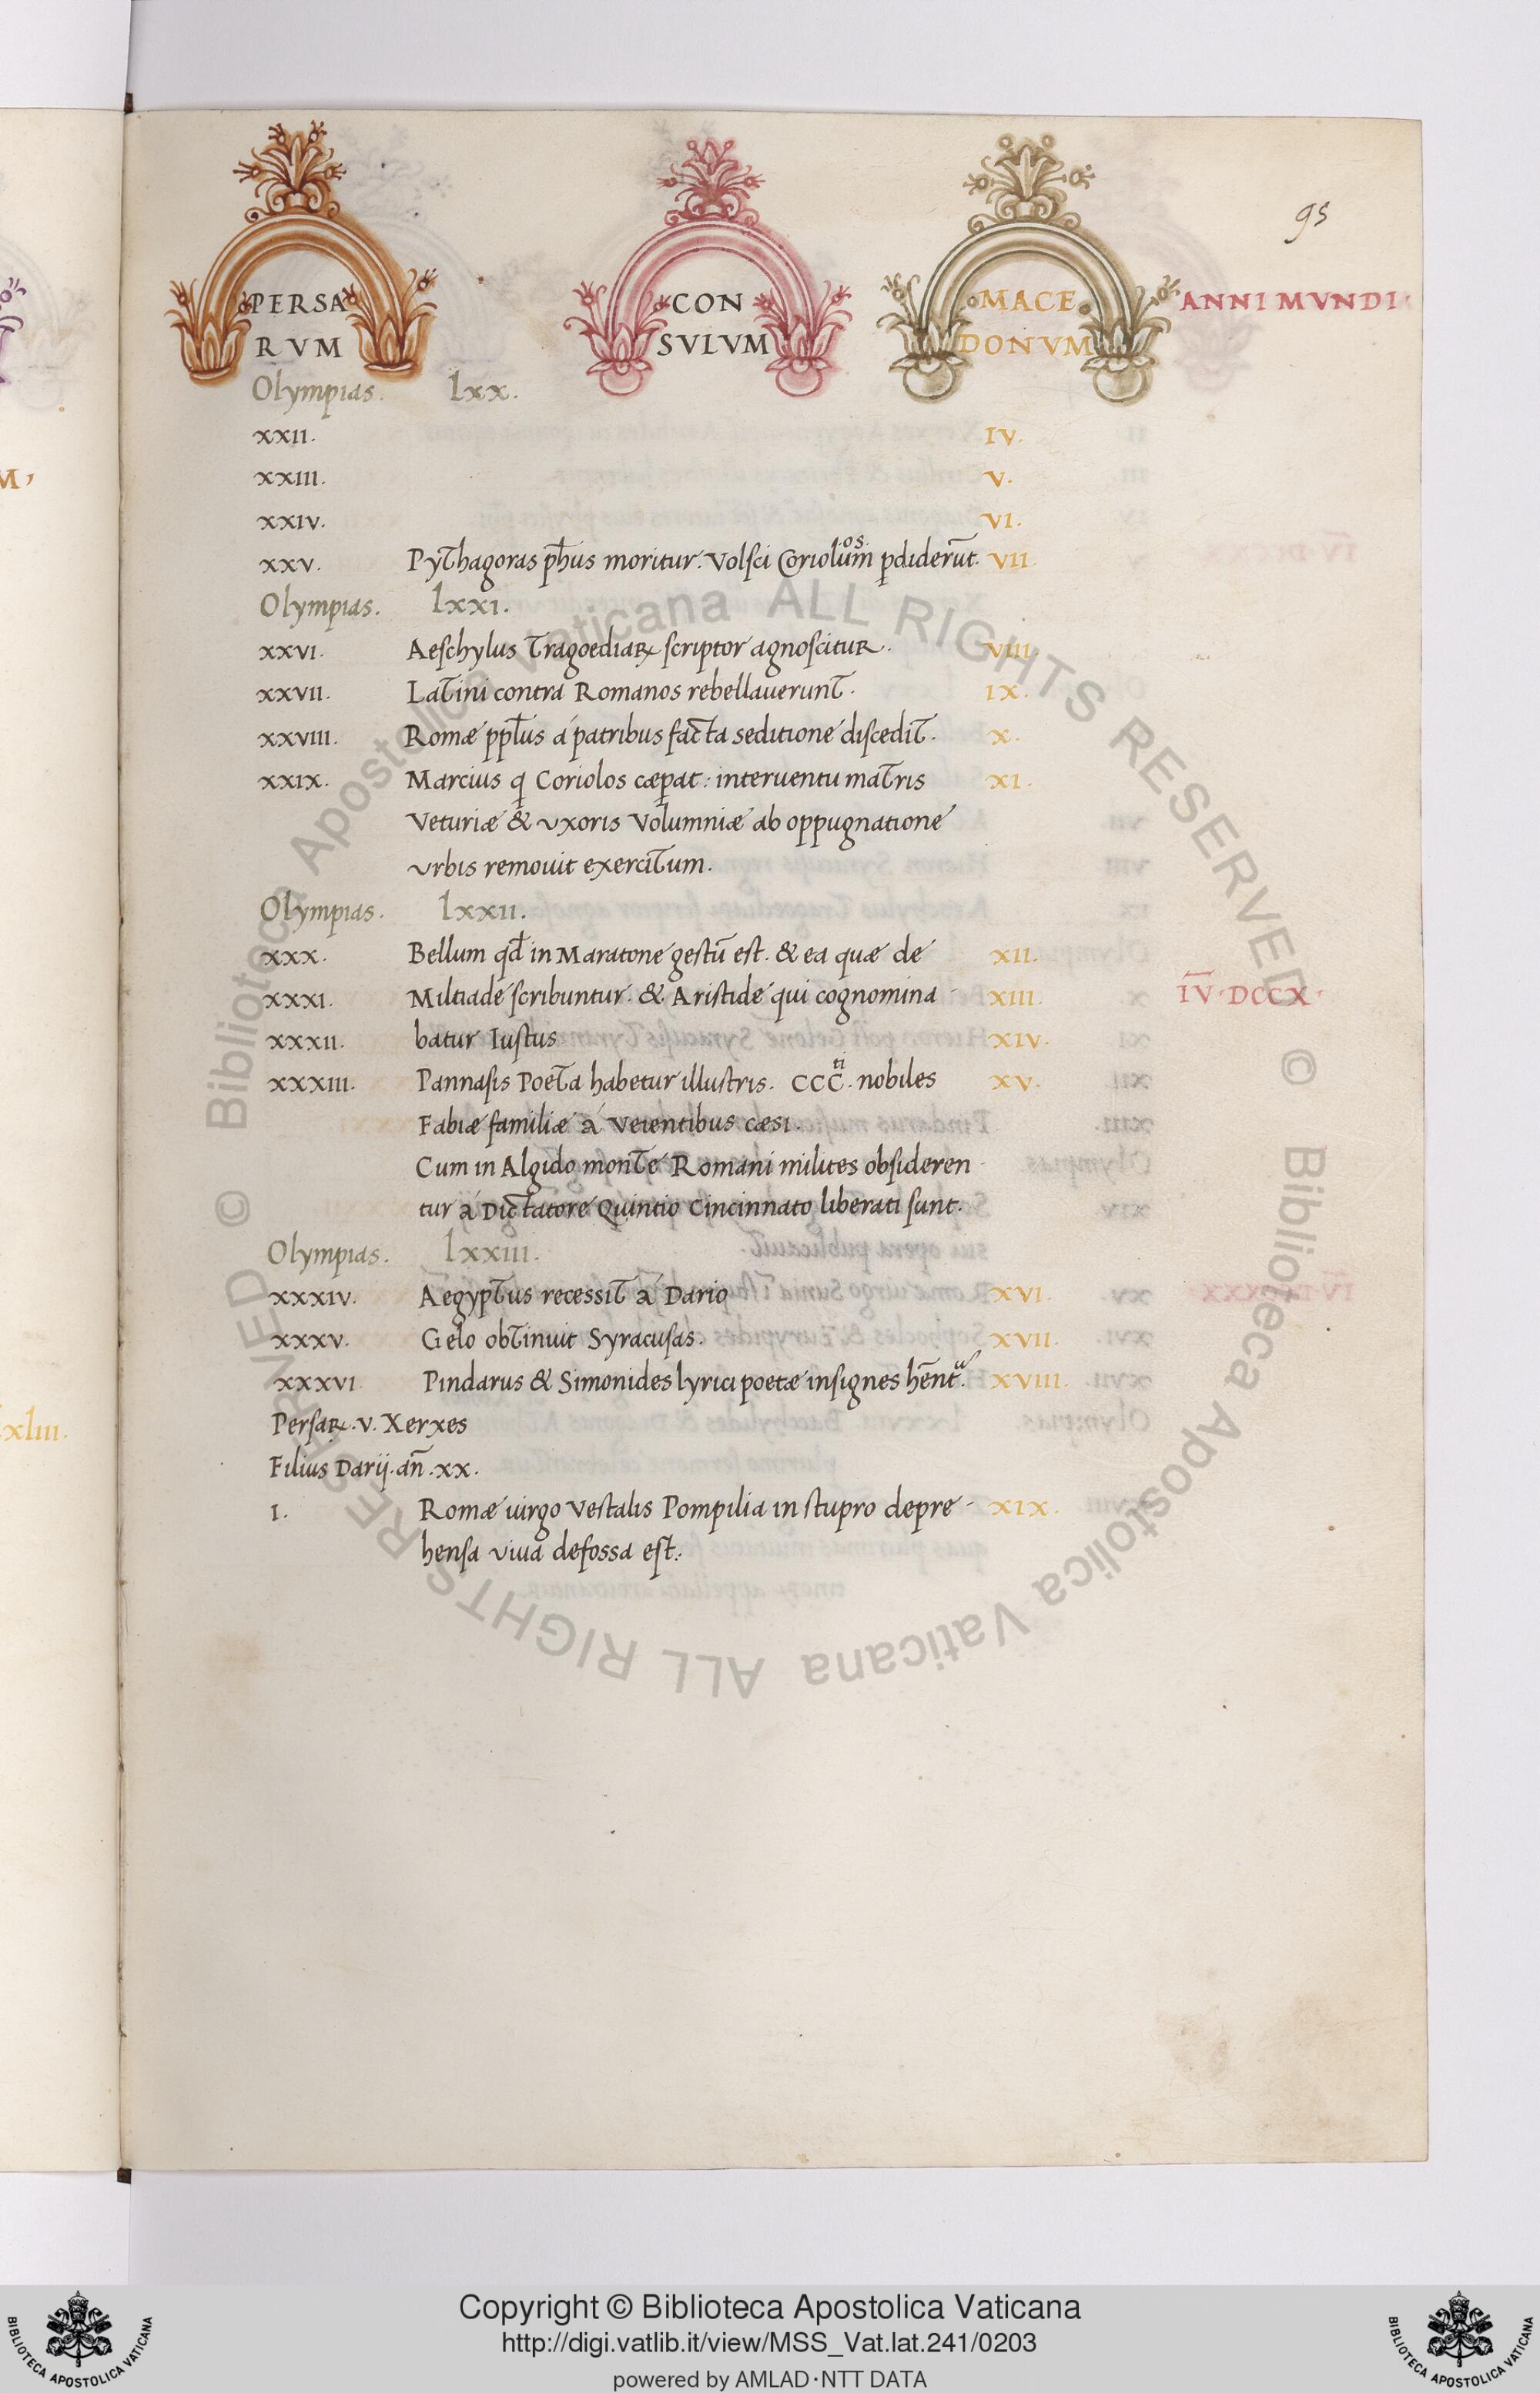 95
PERSA CON MACE ANNI MVNDI
RVM SVLVM DONVM
Olympias. lxx.
XXII. IV.
XXIII. V.
XXIV. VI.
XXV. Pythagoras ph̄us moritur. Volsci Coriolum os. pdiderūt. VII.
Olympias. lxxi.
XXVI. Aeschylus Tragoediaꝝ scriptor agnoscitur. VIII.
XXVII. Latini contra Romanos rebellauerunt. IX.
XXVIII. Romæ ppl̄us á patribus facta seditione discedit. X.
XXIX. Marcius q Coriolos cæpat: interuentu matris XI.
Veturiæ & vxoris Volumniæ ab oppugnatione
vrbis remouit exercitum.
Olympias. lxxii.
XXX. Bellum qd̄ in Maratone gestū est. & ea quæ de XII.
XXXI. Miltiade scribuntur. & Aristide qui cognomina- XIII. I̅V̅·DCCX·
XXXII. batur Iustus XIV.
XXXIII. Pannasis Poeta habetur illustris. CCC ti. nobiles XV.
Fabiæ familiæ á Veientibus cæsi.
Cum in Algido monte Romani milites obsideren-
tur á Dictatore Quintio Cincinnato liberati sunt.
Olympias. lxxiii.
XXXIV. Aegyptus recessit á Dario XVI.
XXXV. Gelo obtinuit Syracusas. XVII.
XXXVI Pindarus & Simonides lyrici poetæ insignes hēnt. XVIII.
Persaꝝ. v. Xerxes
Filius Darij. an̄. xx.
I. Romæ uirgo Vestalis Pompilia in stupro depre- XIX.
hensa viua defossa est.
xliii.
Biblioteca Apostolica Vaticana ALL RIGHTS RESERVED ©
Biblioteca Apostolica Vaticana ALL RIGHTS RESERVED ©
Copyright © Biblioteca Apostolica Vaticana
http://digi.vatlib.it/view/MSS_Vat.lat.241/0203
powered by AMLAD·NTT DATA
BIBLIOTECA APOSTOLICA VATICANA
BIBLIOTECA APOSTOLICA VATICANA